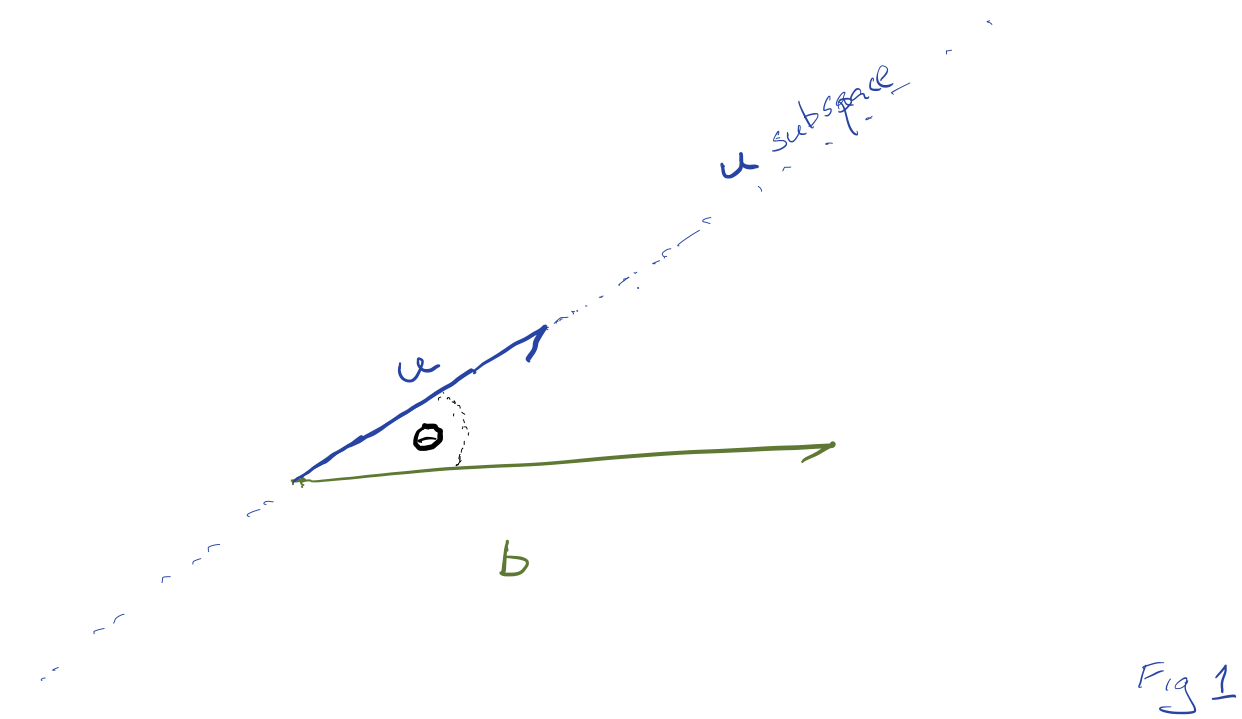 u subspace
u
θ
b
Fig 1